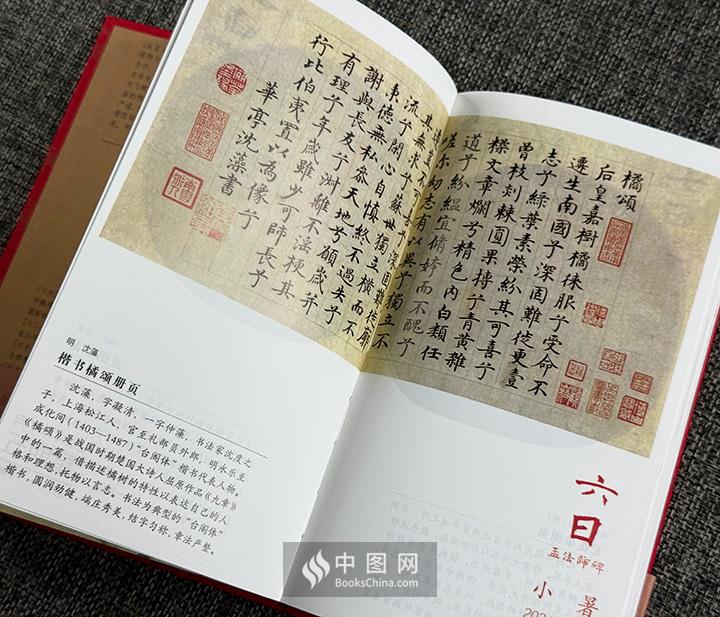 橘頌
后皇嘉樹橘徠服兮受命不
遷生南國兮深固難徙更壹
志兮綠葉素榮紛其可喜兮
曾枝剡棘圓果摶兮青黃雜
糅文章爛兮精色內白類任
道兮紛緼宜脩姱而不醜兮
嗟尔幼志有以異兮獨立不
遷豈不可喜兮深固難徙廓
其無求兮蘇世獨立橫而不
流兮閉心自慎終不過失兮
秉德無私參天地兮願歲并
謝與長友兮淑離不淫梗其
有理兮年歲雖少可師長兮
行比伯夷置以為像兮
華亭沈藻書
明 沈藻
楷书橘颂册页
沈藻，字凝清，一字仲藻，书法家沈度之
子，上海松江人，官至礼部员外郎，明永乐至
成化间（1403—1487）“台阁体”楷书代表人物。
《橘颂》是战国时期楚国大诗人屈原作品《九章》
中的一篇，借描述橘树的特性以表达自己的人
格和理想，托物以言志。书法为典型的“台阁体”
楷书，圆润劲健，端庄秀美，结字匀称，章法严整。
六日
孟法師碑
小暑
中图网
BooksChina.com